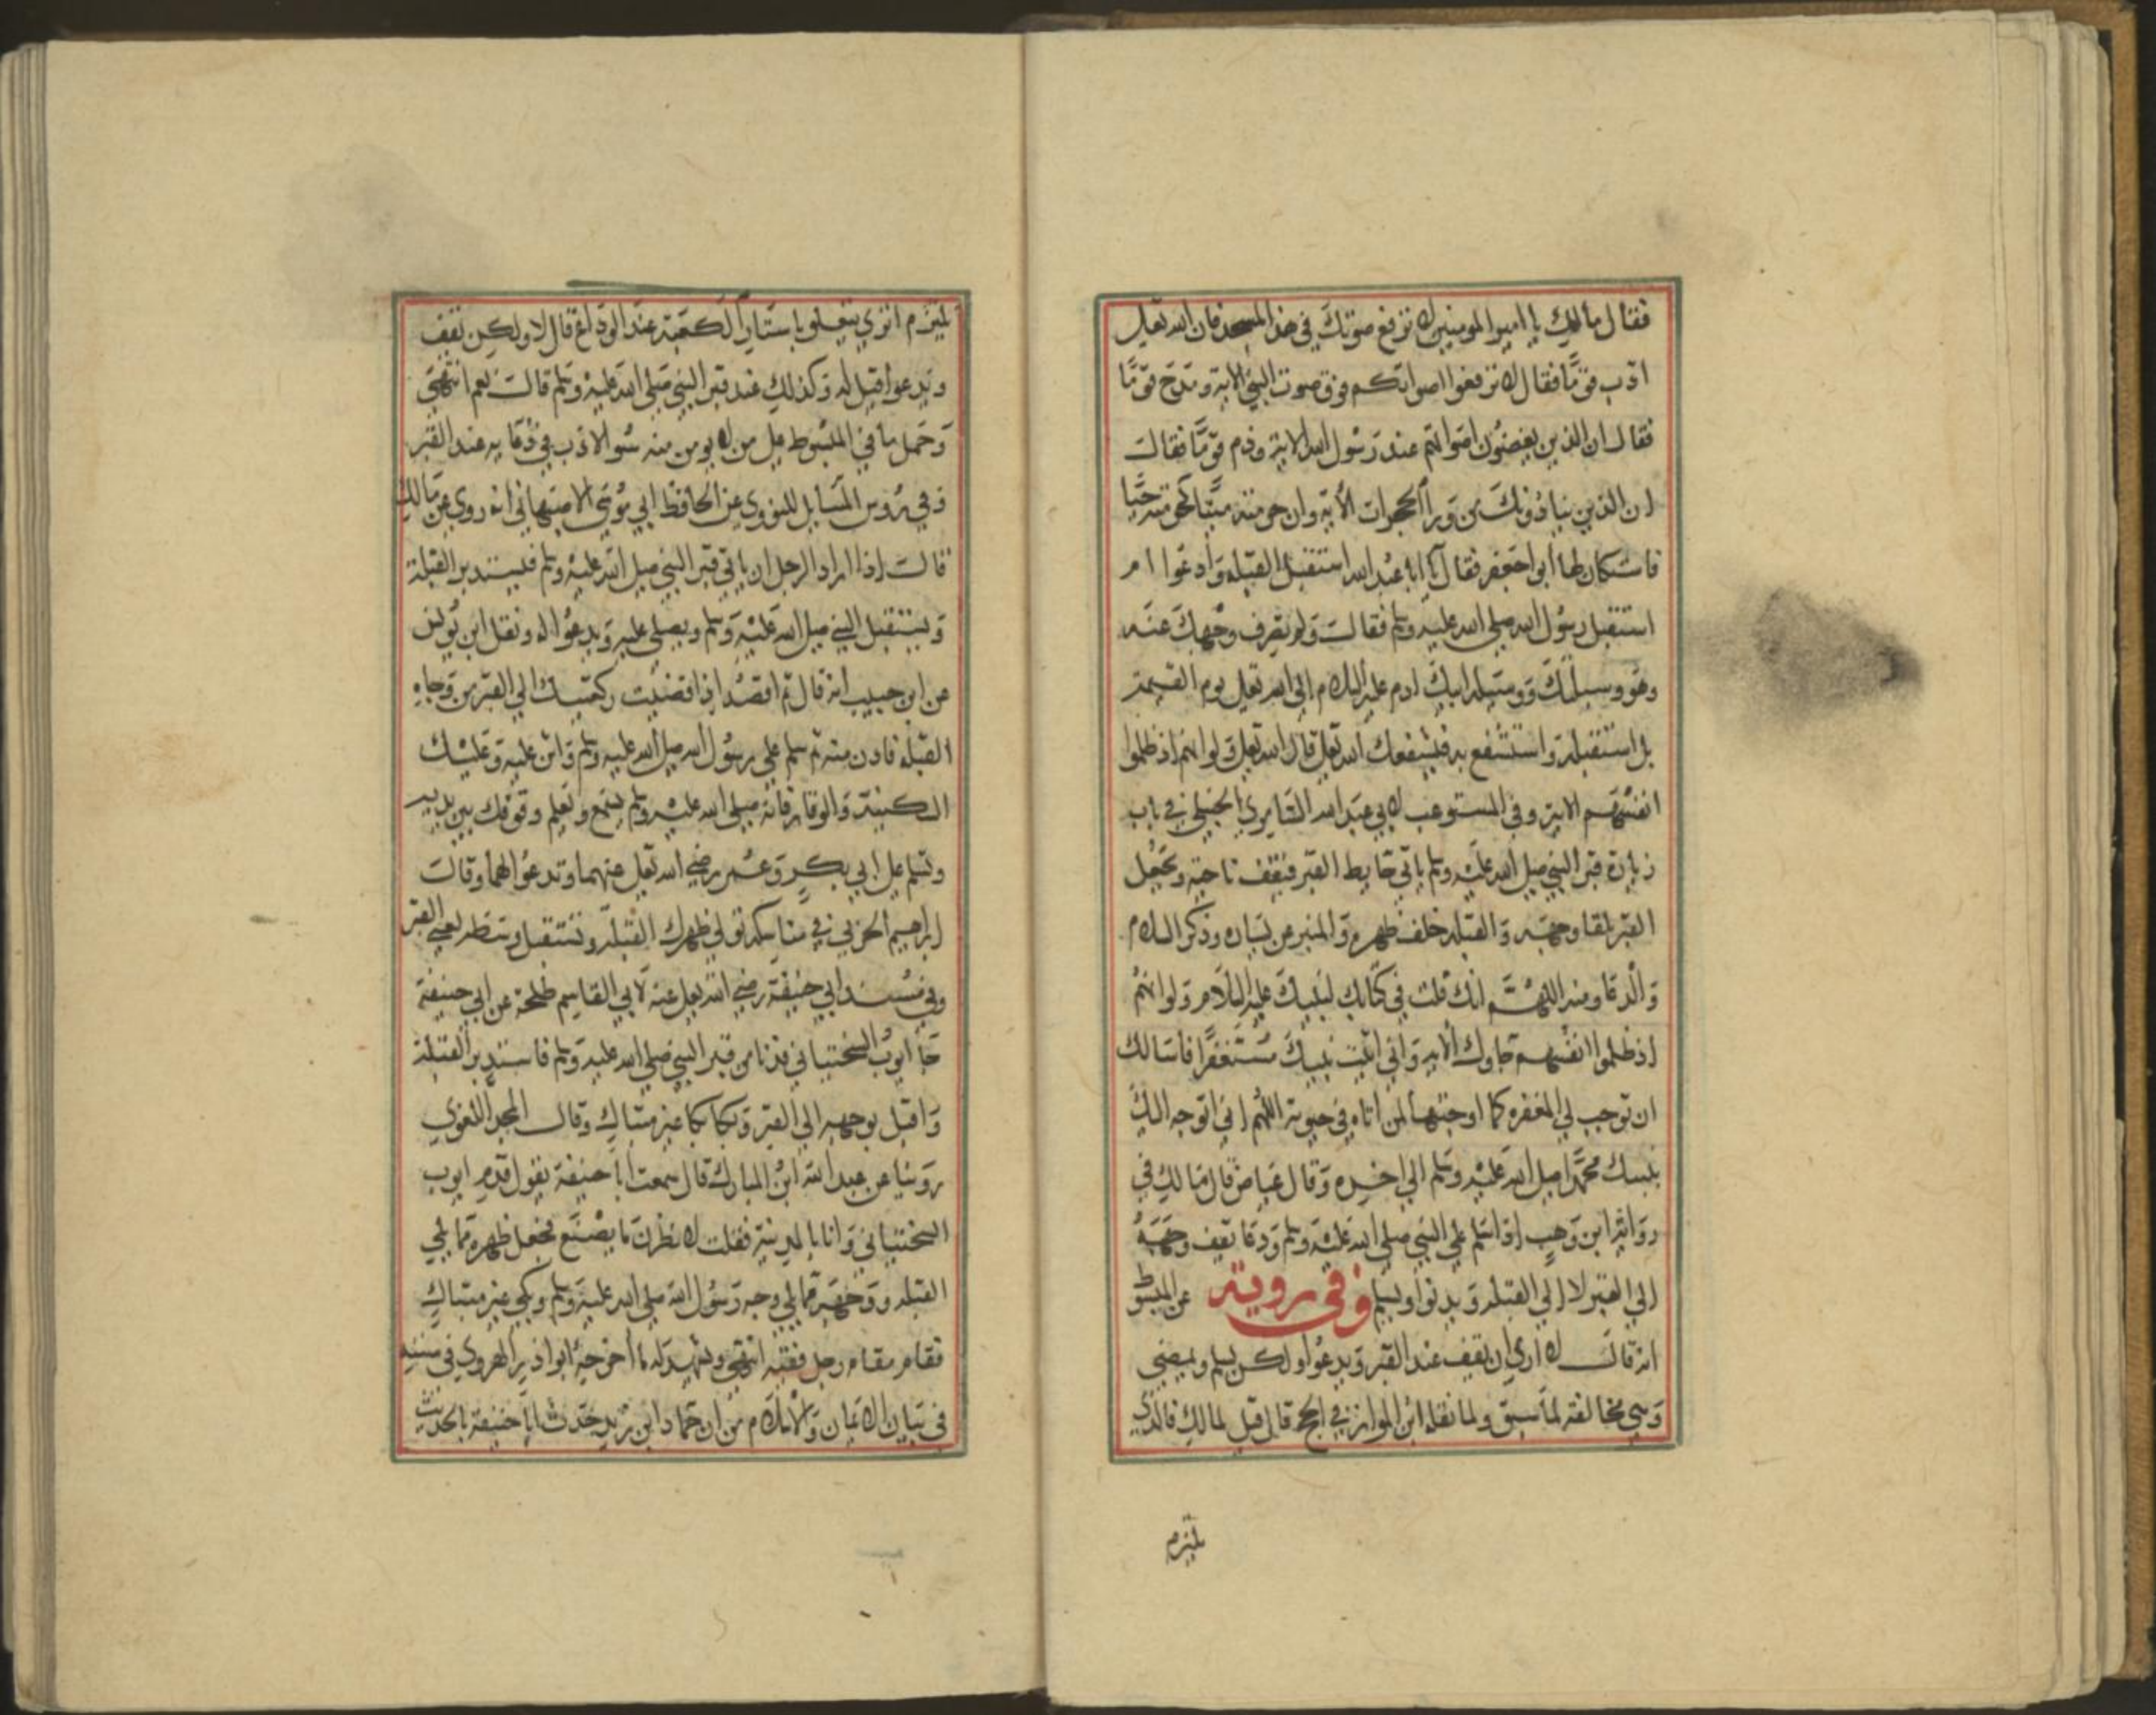 فقال مالك يا امير المومنين لا ترفع صوتك في هذا المسجد فان الله تعالى
ادب قومًا فقال لا ترفعوا اصواتكم فوق صوت النبي الاية ومدح قومًا
فقال ان الذين يغضون اصواتهم عند رسول الله الاية وذم قومًا فقالـ
ان الذين ينادونك من ورآ الحجرات الاية وان حرمته ميتًا كحرمته حيًا
فاستكان لها ابو جعفر فقال يا ابا عبد الله استقبل القبلة وادعوا ام
استقبل رسول الله صلى الله عليه وسلم فقالـ ولم تصرف وجهك عنه
وهو وسيلتك ووسيلة ابيك ادم عليه السلام الى الله تعالى يوم القيمة
بل استقبله واستشفع به فيشفعك الله تعالى قال الله تعالى ولو انهم اذ ظلموا
انفسهم الاية وفي المستوعب لابي عبد الله السامري الحنبلي في باب
زيارة قبر النبي صلى الله عليه وسلم ياتي حايط القبر فيقف ناحيته ويجعل
القبر تلقا وجهه والقبلة خلف ظهره والمنبر عن يساره وذكر السلام
والدعا ومنه اللهم انك قلت في كتابك لنبيك عليه السلام ولو انهم
اذ ظلموا انفسهم جاوك الاية واني اتيت نبيك مستغفرًا فاسالك
ان توجب لي المغفرة كما اوجبتها لمن اتاه في حيوته اللهم اني اتوجه اليك
بنبيك محمد صلى الله عليه وسلم الى اخره وقال عياض قال مالك في
رواية ابن وهب اذا سلم على النبي صلى الله عليه وسلم ودعا يقف وجهه
الى القبر لا الى القبلة ويدنوا ويسلم وفي روية عن المبسوط
انه قالـ لا ارى ان يقف عند القبر ويدعوا ولكن يسلم ويمضي
وهي مخالفة لما سبق ولما نقله ابن المواز في الحج قال قيل لمالك فالذي
يلتزم
يلتزم اترى يتعلق باستار الكعبة عند الوداع قال لا ولكن يقف
ويدعوا قيل له وكذلك عند قبر النبي صلى الله عليه وسلم قالـ نعم انتهى
وحمل ما في المبسوط على من لا يومن منه سو الادب في دعايه عند القبر
وفي روس المسايل للنووي عن الحافظ ابي موسى الاصبهاني انه روي عن مالك
قالـ اذا اراد الرجل ان ياتي قبر النبي صلى الله عليه وسلم فيستدبر القبلة
ويستقبل النبي صلى الله عليه وسلم ويصلي عليه ويدعوا له ونقل ابن يونس
عن ابن حبيب انه قال ثم اقصد اذا قضيت ركعتيك الى القبر من وجاه
القبلة فادن منه ثم سلم على رسول الله صلى الله عليه وسلم واثن عليه وعليك
السكينة والوقار فانه صلى الله عليه وسلم يسمع ويعلم وقوفك بين يديه
وتسلم على ابي بكر وعمر رضي الله تعالى عنهما وتدعوا لهما وقالـ
ابراهيم الحربي في مناسكه تولي ظهرك القبلة وتستقبل وسطه يعني القبر
وفي مسند ابي حنيفة رضي الله تعالى عنه لابي القاسم طلحة عن ابي حنيفة
جا ايوب السختياني فدنا من قبر النبي صلى الله عليه وسلم فاستدبر القبلة
واقبل بوجهه الى القبر وبكا بكا غير متباك وقالـ المجد اللغوي
روينا عن عبد الله ابن المبارك قال سمعت ابا حنيفة يقول قدم ايوب
السختياني وانا بالمدينة فقلت لانظرن ما يصنع فجعل ظهره مما يلي
القبلة ووجهه مما يلي وجه رسول الله صلى الله عليه وسلم وبكى غير متباك
فقام مقام رجل فقيه انتهى ويشهد له ما اخرجه ابوا ذر الهروي في سننه
في بيان الايمان والاسلام من ان حماد ابن زيد حدث ابا حنيفة بالحديث